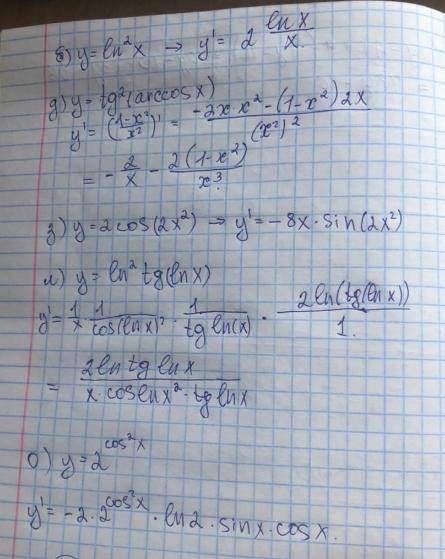 б) y = ln²x → y' = 2 lnx/x.
д) y = tg²(arccosx)
y' = ((1-x²)/x²)' = (-2x x² - (1-x²)2x)/(x²)²
= - 2/x - 2(1-x²)/x³
з) y = 2cos(2x²) → y' = -8x·sin(2x²)
л) y = ln² tg(lnx)
y' = 1/x · 1/cos(lnx)² · 1/tg ln(x) · 2ln(tg(lnx))/1.
= 2ln tg lnx/(x·coslnx²·tg lnx)
о) y = 2^cos²x
y' = -2·2^cos²x · ln2 · sinx · cosx.